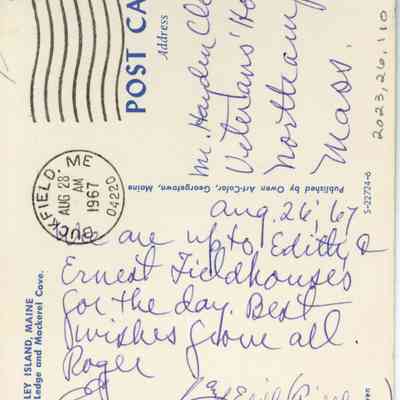 LEY ISLAND, MAINE
Ledge and Mackerel Cove.
Aug. 26, '67
We are up to Edith &
Ernest Fieldhouses
for the day. Best
wishes from all.
Roger
BUCKFIELD ME
AUG 28
AM
1967
04220
POST CA
Address
Mr. Hayden Cl
Veterans' Ho
Northam
Mass.
Published by Owen Art-Color, Georgetown, Maine
S-22724-6
2023.26.110